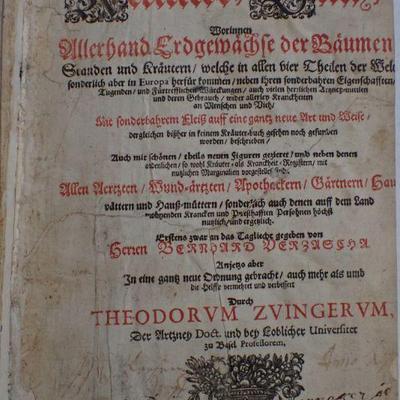 Worinnen
Allerhand Erdgewächse der Bäumen
Stauden und Kräutern / welche in allen vier Theilen der Wel
sonderlich aber in Europa herfür kommen / neben ihren sonderbahren Eigenschafften /
Tugenden / und Fürtrefflichen Würckungen / auch vielen herrlichen Artzney-mitteln
und deren Gebrauch / wider allerley Kranckheiten
an Menschen und Vieh /
Mit sonderbahrem Fleiß auff eine gantz neue Art und Weise /
dergleichen bißher in keinem Kräuter-buch gesehen noch gefunden
worden / beschrieben /
Auch mit schönen / theils neuen Figuren gezieret / und neben denen
ordenlichen / so wohl Kräuter- als Kranckheit-Registern / mit
nutzlichen Marginalien vorgestellt sind.
Allen Aertzten / Wund-ärtzten / Apotheckern / Gärtnern / Hau
vättern und Hauß-müttern / sonderlich auch denen auff dem Land
wohnenden Krancken und Presthafften Persohnen höchst
nutzlich / und ergetzlich.
Erstens zwar an das Tagliecht gegeben von
Herren BERNHARD VERZASCHA
Anjetzo aber
In eine gantz neue Ordnung gebracht / auch mehr als umb
die Helffte vermehret und verbessert
Durch
THEODORVM ZVINGERVM,
Der Artzney Doct. und bey Loblicher Universitet
zu Basel Professorem,